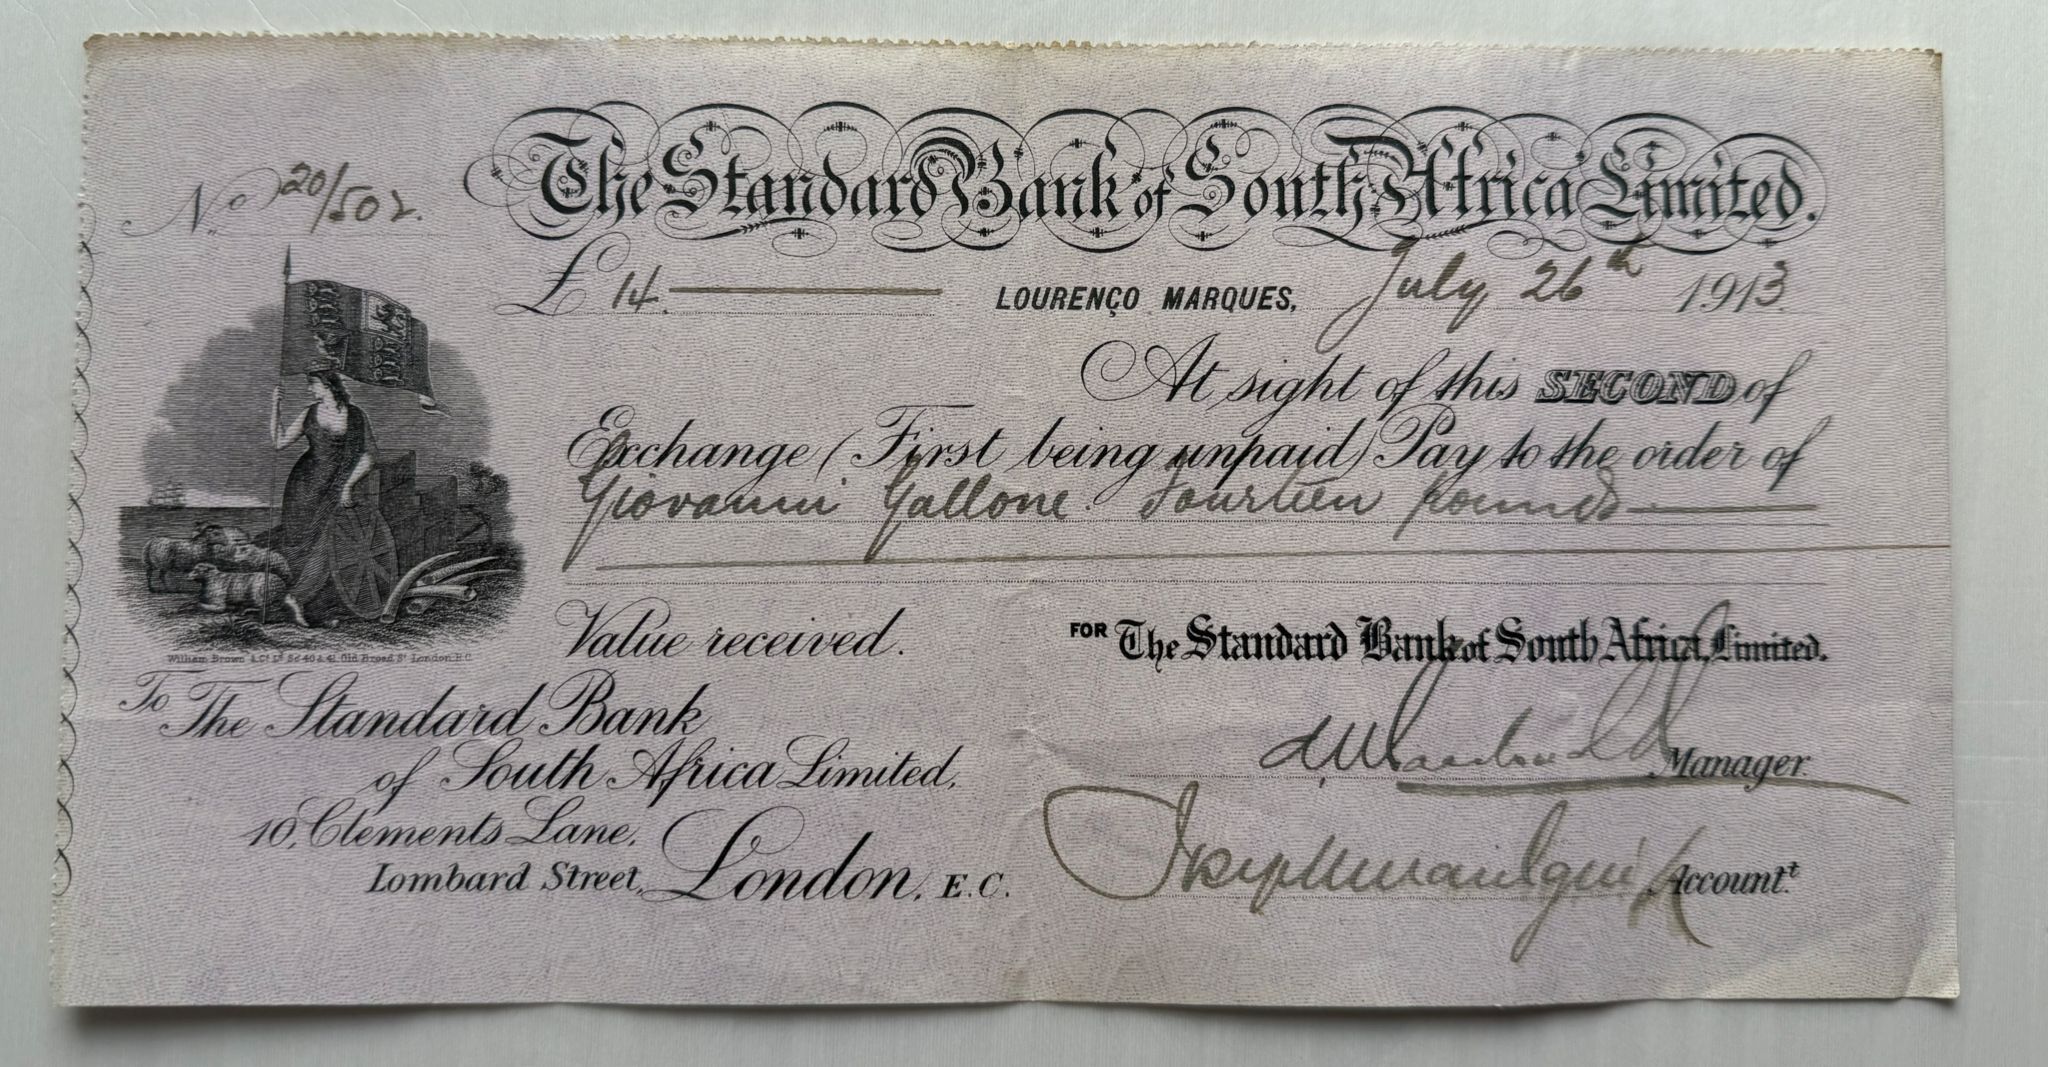 The Standard Bank of South Africa Limited.
No. 20/502.
£ 14. LOURENÇO MARQUES, July 26th 1913
At sight of this SECOND of
Exchange (First being unpaid) Pay to the order of
Giovanni Gallone. Fourteen pounds
Value received.
FOR The Standard Bank of South Africa, Limited.
William Brown & Co. Ld. Sc. 40 & 41 Old Broad St. London. E.C.
To The Standard Bank
of South Africa Limited,
Manager.
10, Clements Lane,
Lombard Street, London, E.C.
Accountt.